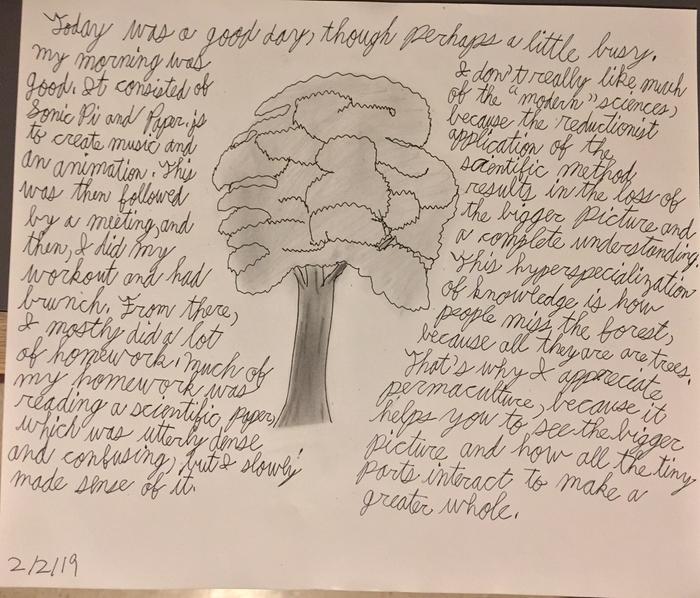 Today was a good day, though perhaps a little busy.
my morning was
good. It consisted of
Sonic Pi and Paper.js
to create music and
an animation. This
was then followed
by a meeting, and
then, I did my
workout and had
brunch. From there,
I mostly did a lot
of homework. Much of
my homework was
reading a scientific paper,
which was utterly dense
and confusing, but I slowly
made sense of it.
I don't really like much
of the "modern" sciences,
because the reductionist
application of the
scientific method
results in the loss of
the bigger picture and
a complete understanding.
This hyperspecialization
of knowledge is how
people miss the forest,
because all they are are trees.
That's why I appreciate
permaculture, because it
helps you to see the bigger
picture and how all the tiny
parts interact to make a
greater whole.
2/2/19